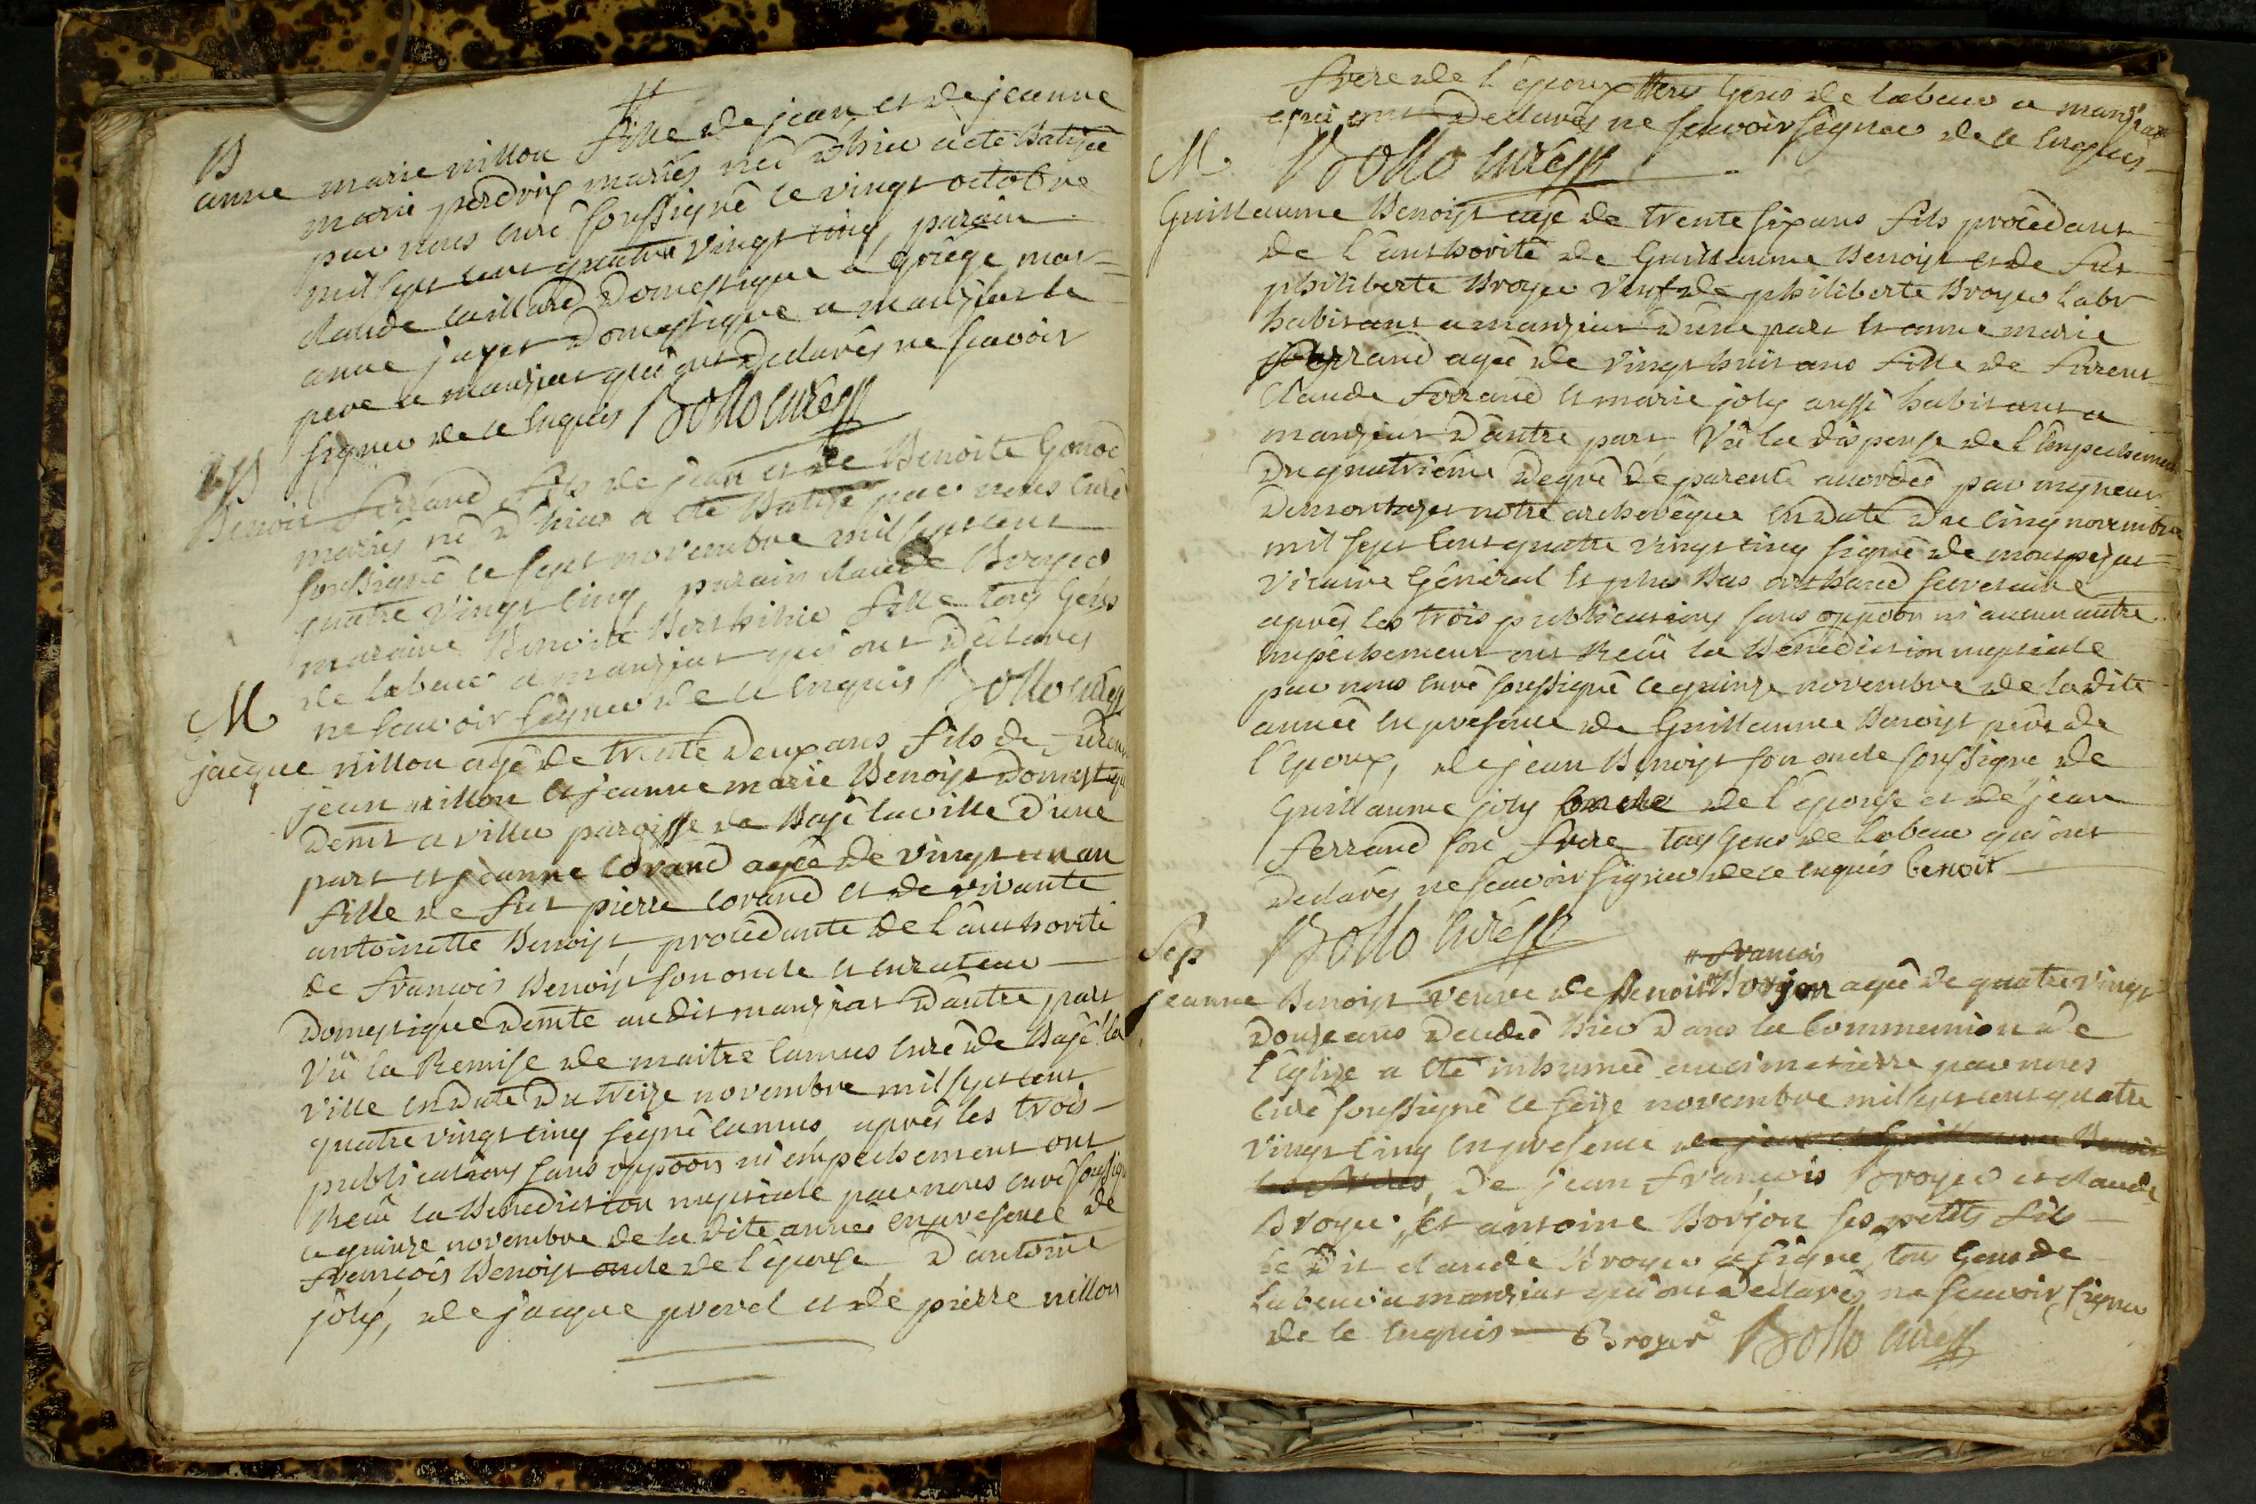 B
anne marie nillon fille de jean et de jeanne
marie perdrix mariés née d'hier a eté Batisée
par nous curé soussigné le vingt octobre
mil sept cent quatre vingt cinq, parain
claude caillard Domestique a griège mar-
anne jayet Domestique a manziat le
pere a manziat qui ont Declarés ne scavoir
signer de ce enquis Bollo curé
B
Benoit ferrand fils de jean et de Benoite Gonod
mariés né d'hier a eté Batisé par nous curé
soussigné le sept novembre mil sept cent
quatre vingt cinq parain claude Broyer
maraine Benoite Berthilie fille tous Gens
de labeur a manziat qui ont déclarés
ne scavoir signer de ce enquis Bollo curé
M
jacque nillon agé de trente deux ans fils de furent
jean nillon et jeanne marie Benoist Domestique
demt a villee paroisse de Bagé la ville d'une
part et jeanne Corand agée de vingt un an
fille de fut pierre Corand et de vivante
antoinette Benoist, procédante de l'authorité
de francois Benoist son oncle et curateur
Domestique Demte au dit manziat d'autre part
Vû la Remise de maitre camus curé de Bagé la
ville en date du treize novembre mil sept cent
quatre vingt cinq signé camus, après les trois
publications sans oppoon ni empechement ont
Recu la Benediction nuptiale par nous curé soussigné
ce quinze novembre de la dite année en presence de
francois Benoist oncle de l'épouse D'antoine
joly, de jacque prevel et de pierre nillon
frere de l'époux tous Gens de labeur a manziat
qui ont Declarés ne scavoir signer de ce enquis
M Bollo curé
Guillaume Benoist agé de trente six ans fils procédant
de l'authorité de Guillaume Benoist et de fut
philiberte Broyer veuf de philiberte Broyer labr
habitant a manziat d'une part et anne marie
ferrand agée de vingt huit ans fille de furent
Claude ferrand et marie joly aussi habitant a
manziat d'autre part Vû la dispense de l'empechement
du quatrième Degré de parenté accordée par mgneur
Demontazet notre archevêque en date du cinq novembre
mil sept cent quatre vingt cinq signé de
vicaire Général et plus Bas secretaire
après les trois publications sans oppoon ni aucun autre
empêchement ont Recû la Bénédiction nuptiale
par nous curé soussigné ce quinze novembre de la dite
année en presence de Guillaume Benoist père de
l'époux, de jean Benoist son oncle soussigné de
Guillaume joly oncle de l'épouse et de jean
ferrand son frere tous Gens de labeur qui ont
Declarés ne scavoir signer de ce enquis benoit
Bollo curé
Sep
francois
jeanne Benoist veuve de Benoit Borjon agée de quatre vingt
Douze ans decedée hier Dans la Communion de
l'église a eté inhumée au cimetierre par nous
curé soussigné le seize novembre mil sept cent quatre
vingt cinq en presence de jean et Guillaume Benoit
, De jean francois Broyer et claude
Broyer, Et antoine Borjon ses petits fils
le dit claude Broyer a signé, tous Gens de
Labeur a manziat qui ont Declarés ne scavoir signer
de ce enquis Broyer Bollo curé